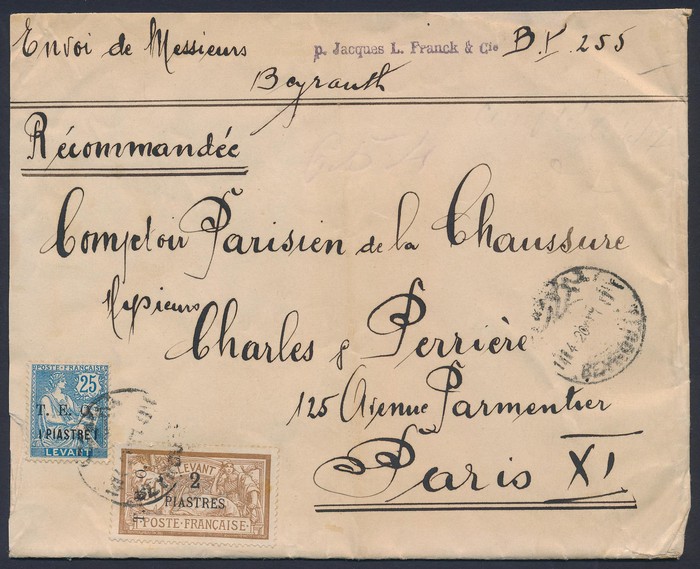 Envoi de Messieurs p. Jacques L. Franck & Cie B.P. 255
Beyrouth
Récommandée
Comptoir Parisien de la Chaussure
Messieurs
Charles & Perrière
125 Avenue Parmentier
Paris XI
POSTE FRANÇAISE
25
T. E. O.
1 PIASTRE
LEVANT
LEVANT
2
PIASTRES
POSTE FRANÇAISE
BEYROUTH